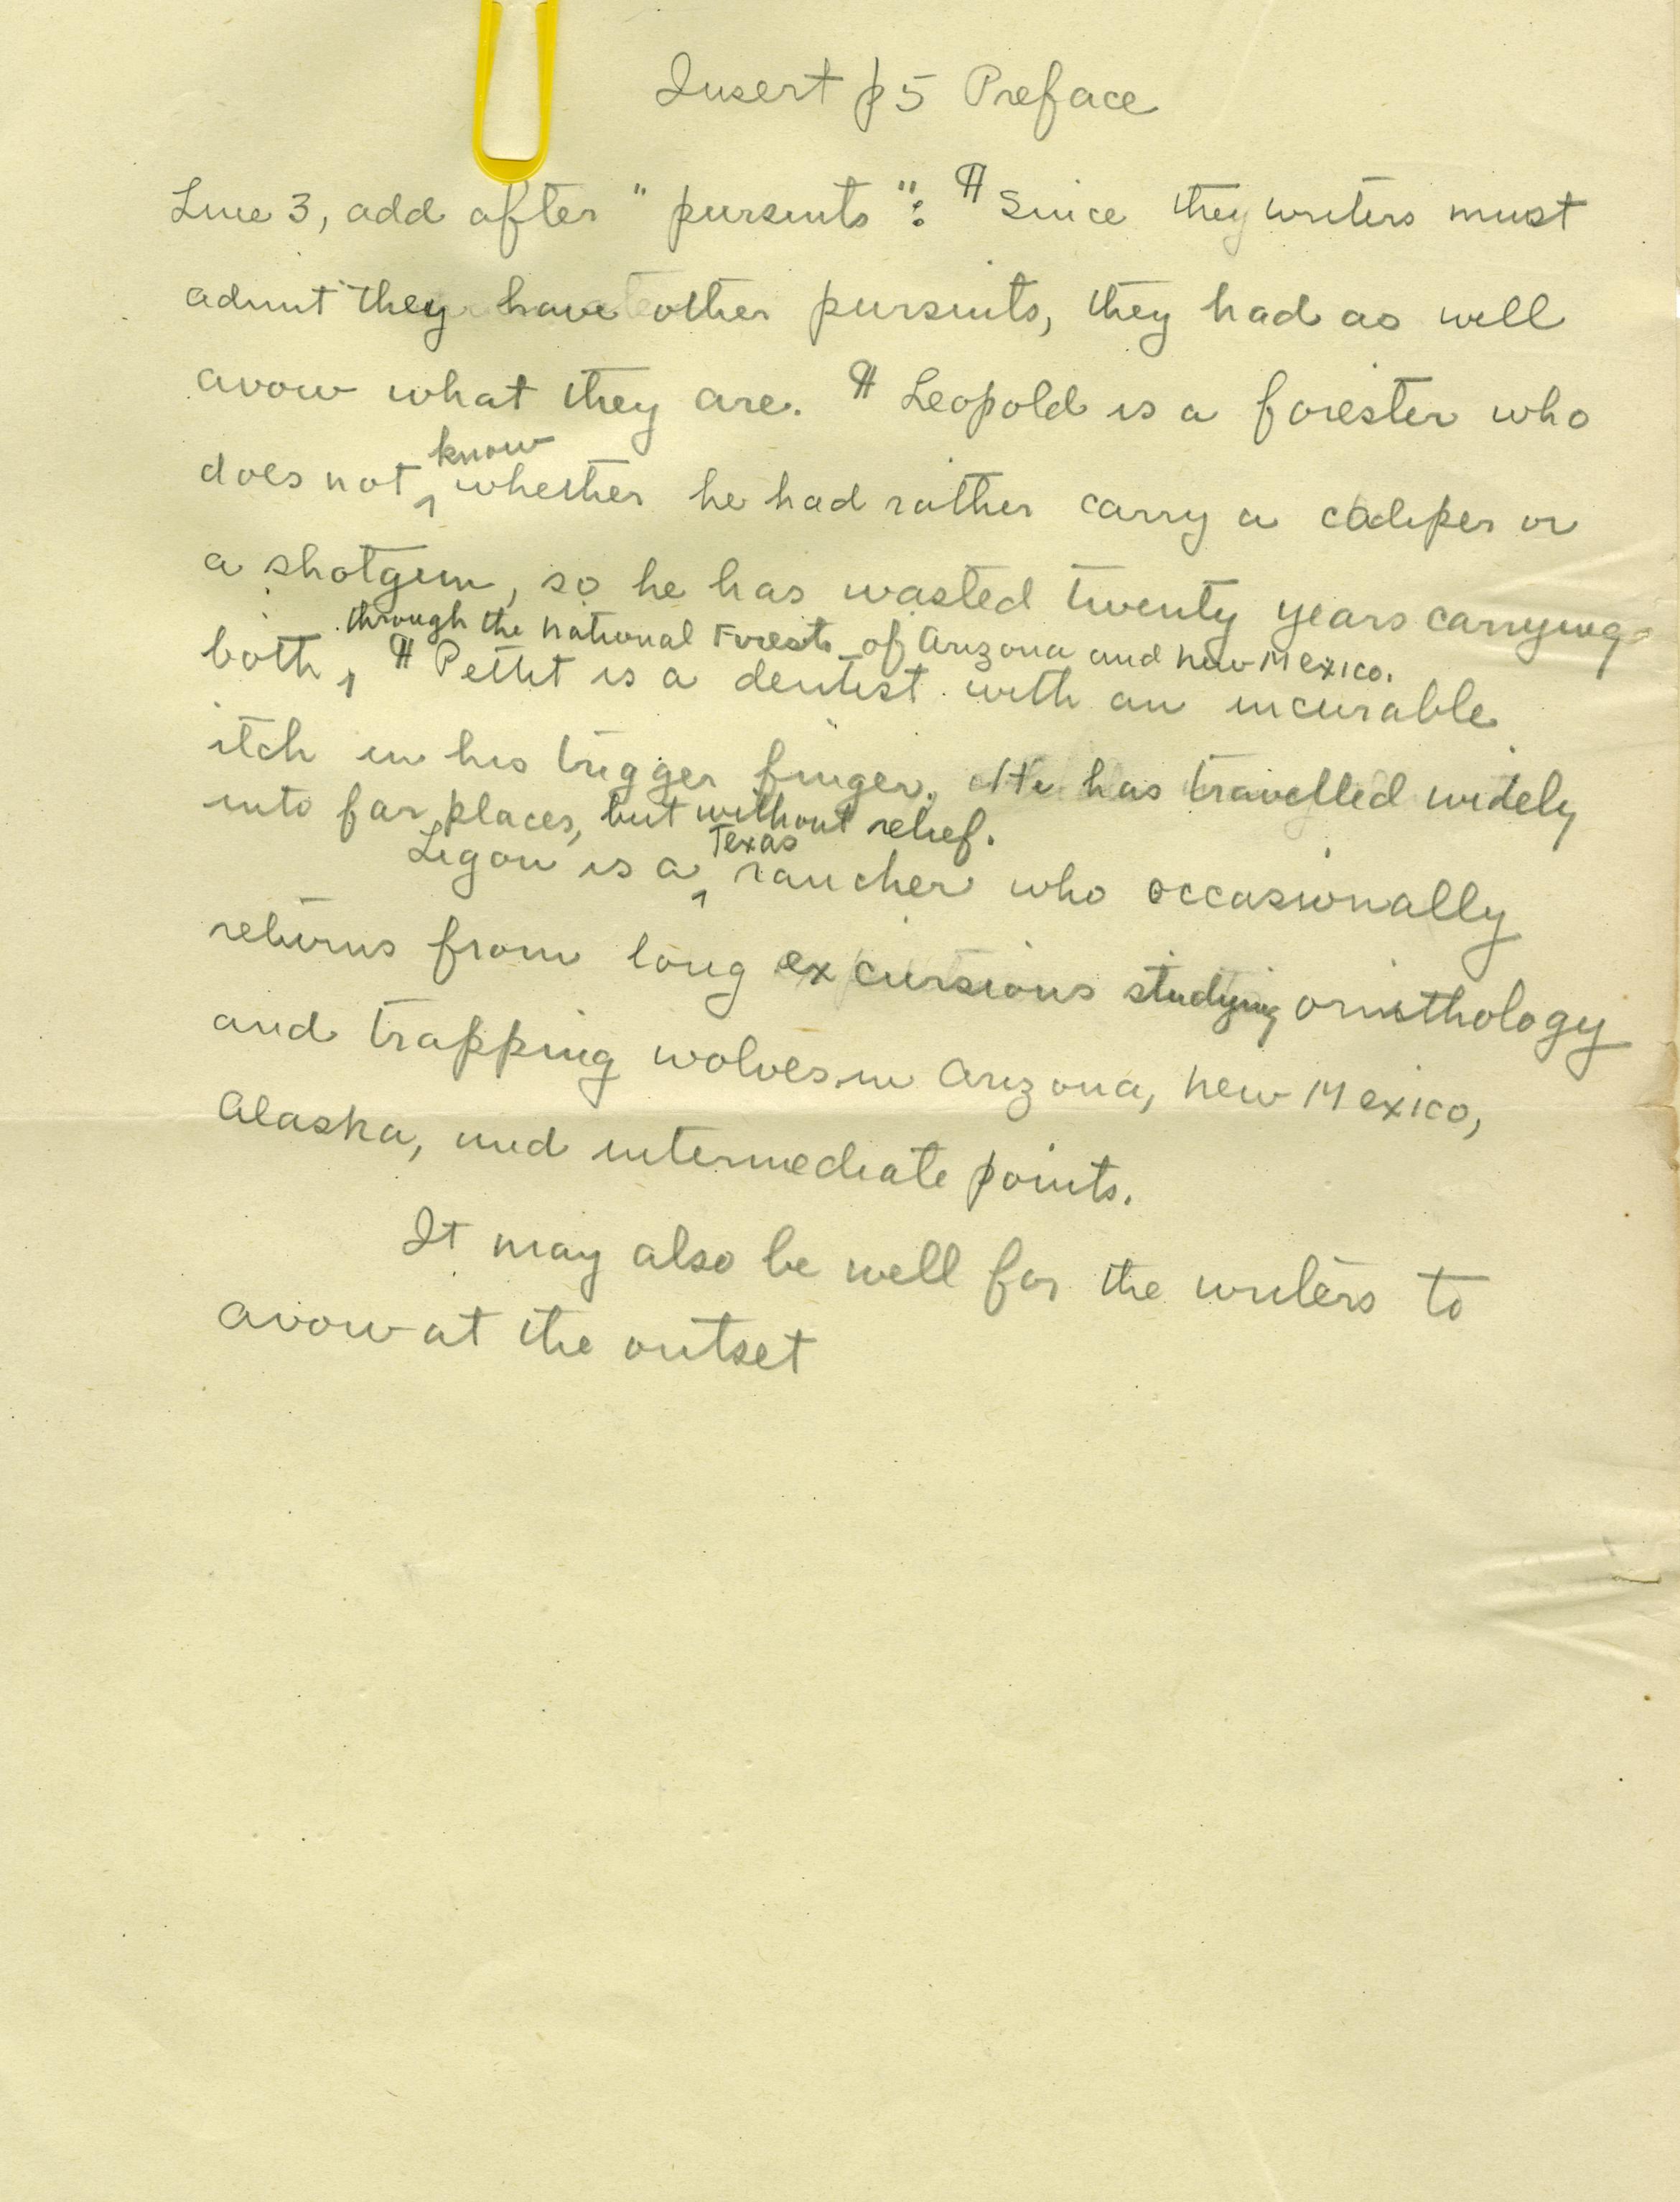 Insert p5 Preface
Line 3, add after "pursuits": ¶ Since they writers must
admit they have other pursuits, they had as well
avow what they are. ¶ Leopold is a forester who
know
does not ‸ whether he had rather carry a caliper or
a shotgun, so he has wasted twenty years carrying
through the National Forests of Arizona and New Mexico.
both ‸ ¶ Pettit is a dentist with an incurable
itch in his trigger finger. He has travelled widely
into far places, but without relief.
Texas
Ligon is a ‸ rancher who occasionally
returns from long excursions studying ornithology
and trapping wolves in Arizona, New Mexico,
Alaska, and intermediate points.
It may also be well for the writers to
avow at the outset